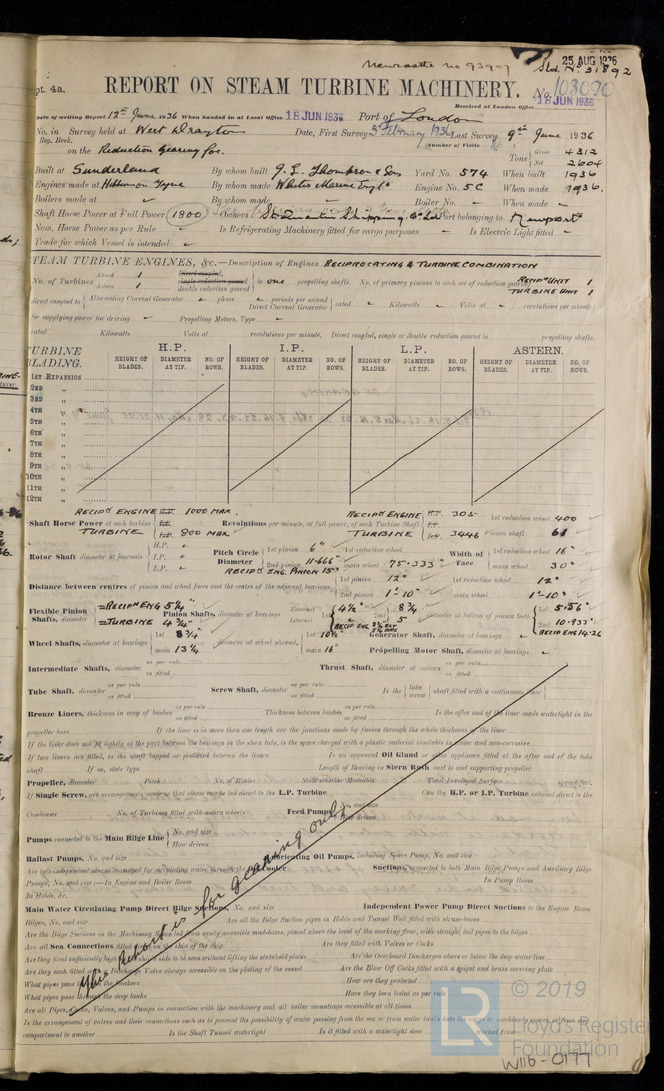 Newcastle No 93907
25 AUG 1936
Sld. No. 31892
pt. 4a.
REPORT ON STEAM TURBINE MACHINERY.
No. 103030
Received at London Office 18 JUN 1936
Date of writing Report 12th June 1936 When handed in at Local Office 18 JUN 1936 Port of London
No. in Reg. Book. Survey held at West Drayton Date, First Survey 5th February 1936 Last Survey 9th June 1936
Number of Visits
on the Reduction Gearing for. Tons Gross 4312 Net 2604
Built at Sunderland By whom built J. L. Thompson & Sons Yard No. 574 When built 1936
Engines made at By whom made White's Marine Engs Engine No. 5C When made 1936.
Boilers made at By whom made Boiler No. When made
Shaft Horse Power at Full Power 1900 Owners St. Quentin Shipping Co Ltd Port belonging to Newport
Nom. Horse Power as per Rule Is Refrigerating Machinery fitted for cargo purposes Is Electric Light fitted
Trade for which Vessel is intended
STEAM TURBINE ENGINES, &c.—Description of Engines RECIPROCATING & TURBINE COMBINATION
No. of Turbines Ahead 1 Astern 1 Direct coupled, single reduction geared double reduction geared to one propelling shafts. No. of primary pinions to each set of reduction gearing RECIP UNIT 1 TURBINE UNIT 1
direct coupled to Alternating Current Generator phase periods per second Direct Current Generator rated Kilowatts Volts at revolutions per minute
for supplying power for driving Propelling Motors, Type
rated Kilowatts Volts at revolutions per minute. Direct coupled, single or double reduction geared to propelling shafts.
TURBINE BLADING. H.P. I.P. L.P. ASTERN.
HEIGHT OF BLADES. DIAMETER AT TIP. NO. OF ROWS. HEIGHT OF BLADES. DIAMETER AT TIP. NO. OF ROWS. HEIGHT OF BLADES. DIAMETER AT TIP. NO. OF ROWS. HEIGHT OF BLADES. DIAMETER AT TIP. NO. OF ROWS.
1ST EXPANSION
2ND "
3RD "
4TH "
5TH "
6TH "
7TH "
8TH "
9TH "
10TH "
11TH "
12TH "
Shaft Horse Power at each turbine RECIPG ENGINE 1000 MAX. TURBINE 800 MAX Revolutions per minute, at full power, of each Turbine Shaft RECIPG ENGINE 305 TURBINE 3446 1st reduction wheel 400 main shaft 61
Rotor Shaft diameter at journals H.P. I.P. L.P. Pitch Circle Diameter 1st pinion 6" 2nd pinion 11.666" RECIPG ENG. PINION 15" 1st reduction wheel main wheel 75.333" Width of Face 1st reduction wheel 16" main wheel 30"
Distance between centres of pinion and wheel faces and the centre of the adjacent bearings 1st pinion 12" 2nd pinion 1'-10" 1st reduction wheel 12" main wheel 1'-10"
Flexible Pinion Shafts, diameter RECIPG ENG 5 1/4" TURBINE 4 3/4" Pinion Shafts, diameter at bearings External 4 1/4" Internal 2nd 8 3/4 5 diameter at bottom of pinion teeth 1st 5.56" 2nd 10.933" RECIP ENG 14.26
Wheel Shafts, diameter at bearings 1st 8 3/4" main 13 1/4 diameter at wheel shroud, 1st 10 1/4 main 16" Generator Shaft, diameter at bearings Propelling Motor Shaft, diameter at bearings
Intermediate Shafts, diameter as per rule as fitted Thrust Shaft, diameter at collars as per rule as fitted
Tube Shaft, diameter as per rule as fitted Screw Shaft, diameter as per rule as fitted Is the tube screw shaft fitted with a continuous liner
Bronze Liners, thickness in way of bushes as per rule as fitted Thickness between bushes as per rule as fitted Is the after end of the liner made watertight in the
propeller boss If the liner is in more than one length are the junctions made by fusion through the whole thickness of the liner
If the liner does not fit tightly at the part between the bearings in the stern tube, is the space charged with a plastic material insoluble in water and non-corrosive
If two liners are fitted, is the shaft lapped or protected between the liners Is an approved Oil Gland or other appliance fitted at the after end of the tube
shaft If so, state type Length of Bearing in Stern Bush next to and supporting propeller
Propeller, diameter Pitch No. of Blades State whether Moveable Total Developed Surface square feet.
If Single Screw, are arrangements made so that steam can be led direct to the L.P. Turbine Can the H.P. or I.P. Turbine exhaust direct to the
Condenser No. of Turbines fitted with astern wheels Feed Pumps No. and size How driven
Pumps connected to the Main Bilge Line No. and size How driven
Ballast Pumps, No. and size Lubricating Oil Pumps, including Spare Pump, No. and size
Are two independent means arranged for circulating water through the Oil Cooler Suctions, connected to both Main Bilge Pumps and Auxiliary Bilge
Pumps, No. and size:—In Engine and Boiler Room In Pump Room
In Holds, &c.
Main Water Circulating Pump Direct Bilge Suctions, No. and size Independent Power Pump Direct Suctions to the Engine Room
Bilges, No. and size Are all the Bilge Suction pipes in Holds and Tunnel Well fitted with strum-boxes
Are the Bilge Suctions in the Machinery Spaces led from easily accessible mud-boxes, placed above the level of the working floor, with straight tail pipes to the bilges
Are all Sea Connections fitted direct on the skin of the ship Are they fitted with Valves or Cocks
Are they fixed sufficiently high on the ship's side to be seen without lifting the stokehold plates Are the Overboard Discharges above or below the deep water line
Are they each fitted with a Discharge Valve always accessible on the plating of the vessel Are the Blow Off Cocks fitted with a spigot and brass covering plate
What pipes pass through the bunkers How are they protected
What pipes pass through the deep tanks Have they been tested as per rule
Are all Pipes, Cocks, Valves, and Pumps in connection with the machinery and all boiler mountings accessible at all times
Is the arrangement of valves and their connections such as to prevent the possibility of water passing from the sea or from water tanks into the cargo or machinery spaces, or from one
compartment to another Is the Shaft Tunnel watertight Is it fitted with a watertight door worked from
This Report is for gearing only
© 2019
LR
Lloyd's Register
Foundation
W116-0177